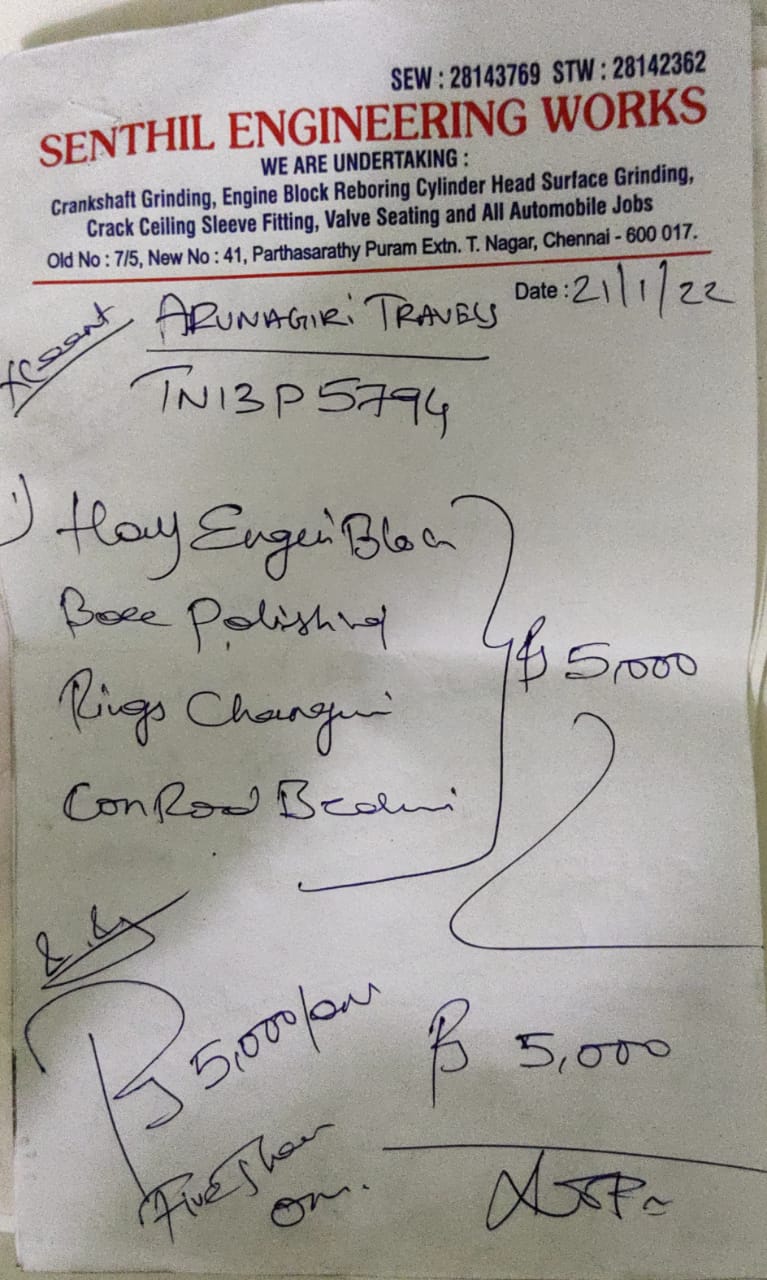 SEW : 28143769 STW : 28142362
SENTHIL ENGINEERING WORKS
WE ARE UNDERTAKING :
Crankshaft Grinding, Engine Block Reboring Cylinder Head Surface Grinding,
Crack Ceiling Sleeve Fitting, Valve Seating and All Automobile Jobs
Old No : 7/5, New No : 41, Parthasarathy Puram Extn. T. Nagar, Chennai - 600 017.
Date : 21/1/22
ARUNAGIRI TRAVELS
TN13P5794
1)
Bore Polishing
Rings
Con Rod
5,000
5,000
5,000
Five